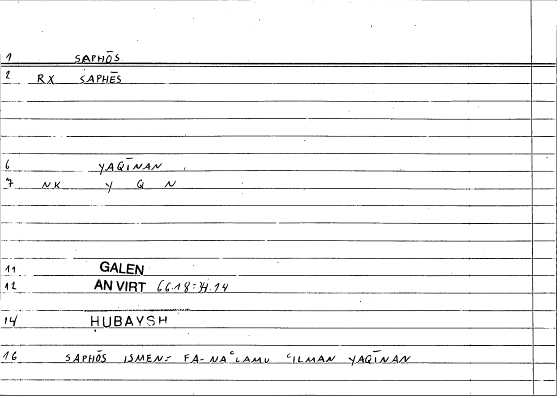 1 SAPHŌS
2 RX SAPHĒS
6 YAQĪNAN
7 NK Y Q N
11 GALEN
12 AN VIRT 66.18:34.14
14 HUBAYSH
16 SAPHŌS ISMEN: FA-NAᶜLAMU ᶜILMAN YAQĪNAN